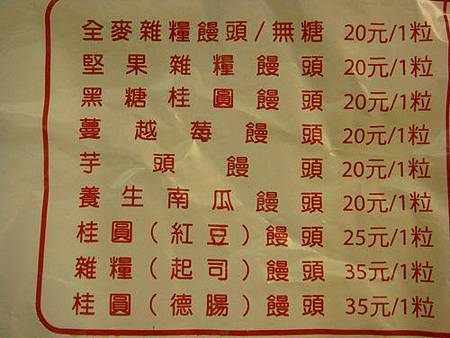 全麥雜糧饅頭/無糖 20元/1粒
堅果雜糧饅頭 20元/1粒
黑糖桂圓饅頭 20元/1粒
蔓越莓饅頭 20元/1粒
芋頭饅頭 20元/1粒
養生南瓜饅頭 20元/1粒
桂圓(紅豆)饅頭 25元/1粒
雜糧(起司)饅頭 35元/1粒
桂圓(德腸)饅頭 35元/1粒